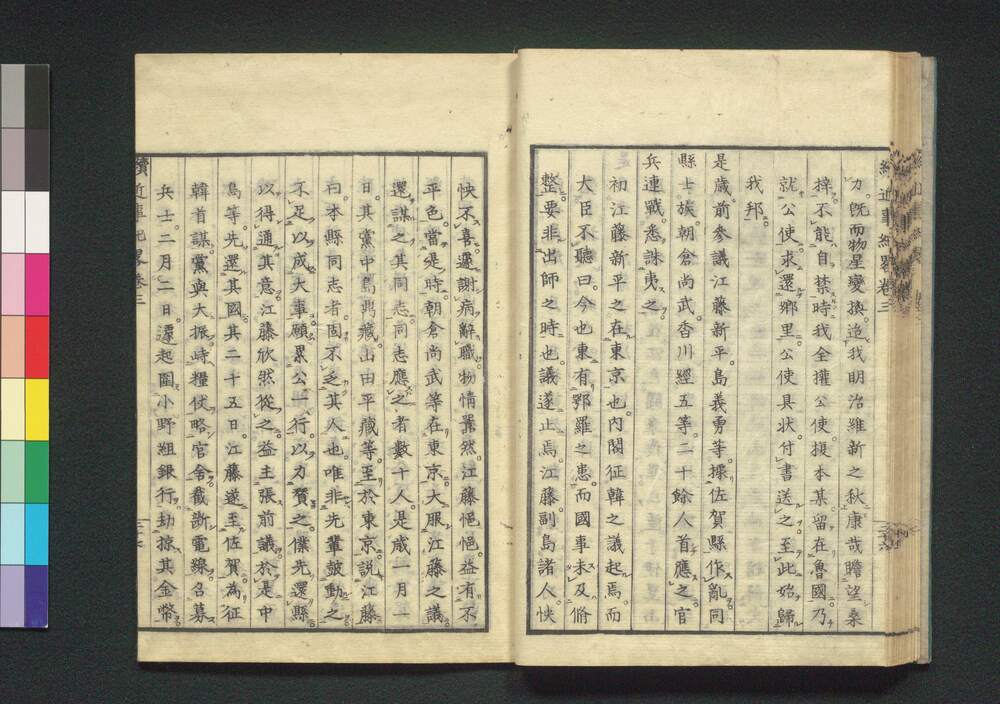 力。既而物星變換。迨我明治維新之秋。康哉瞻望桑
梓。不能自禁。時我全權公使。榎本某。留在魯國。乃
就公使。求還鄉里。公使具狀付書送之。至此始歸
我邦。
是歲。前參議江藤新平。島義勇等。據佐賀縣作亂。同
縣士族。朝倉尚武。香川經五等。二十餘人首應之。官
兵連戰。悉誅夷之。
初江藤新平之在東京也。內閣征韓之議起焉。而
大臣不聽曰。今也東有鄂羅之患。而國事未及脩
整。要非出師之時也。議遂止焉。江藤。副島諸人。怏
怏不喜。遞謝病辭職。物情囂然。江藤悒悒。益有不
平色。當是時。朝倉尚武等在東京。大服江藤之議。
還謀之其同志。同志應之者數十人。是歲一月一
日。其黨中島鼎藏。山田平藏等。至於東京。說江藤
曰。本縣同志者。固不乏其人也。唯非先輩鼓動之
不足以成大事。願累公一行。以力贊之。僕先還縣
以得通其意。江藤欣然從之。益主張前議。於是中
島等。先還其國。其二十五日。江藤遂至佐賀。為征
韓首謀。黨與大振。峙糧仗。略官舍。截斷電線。召募
兵士。二月二日。遽起圍小野組銀行。劫掠其金幣
續近事紀略卷三